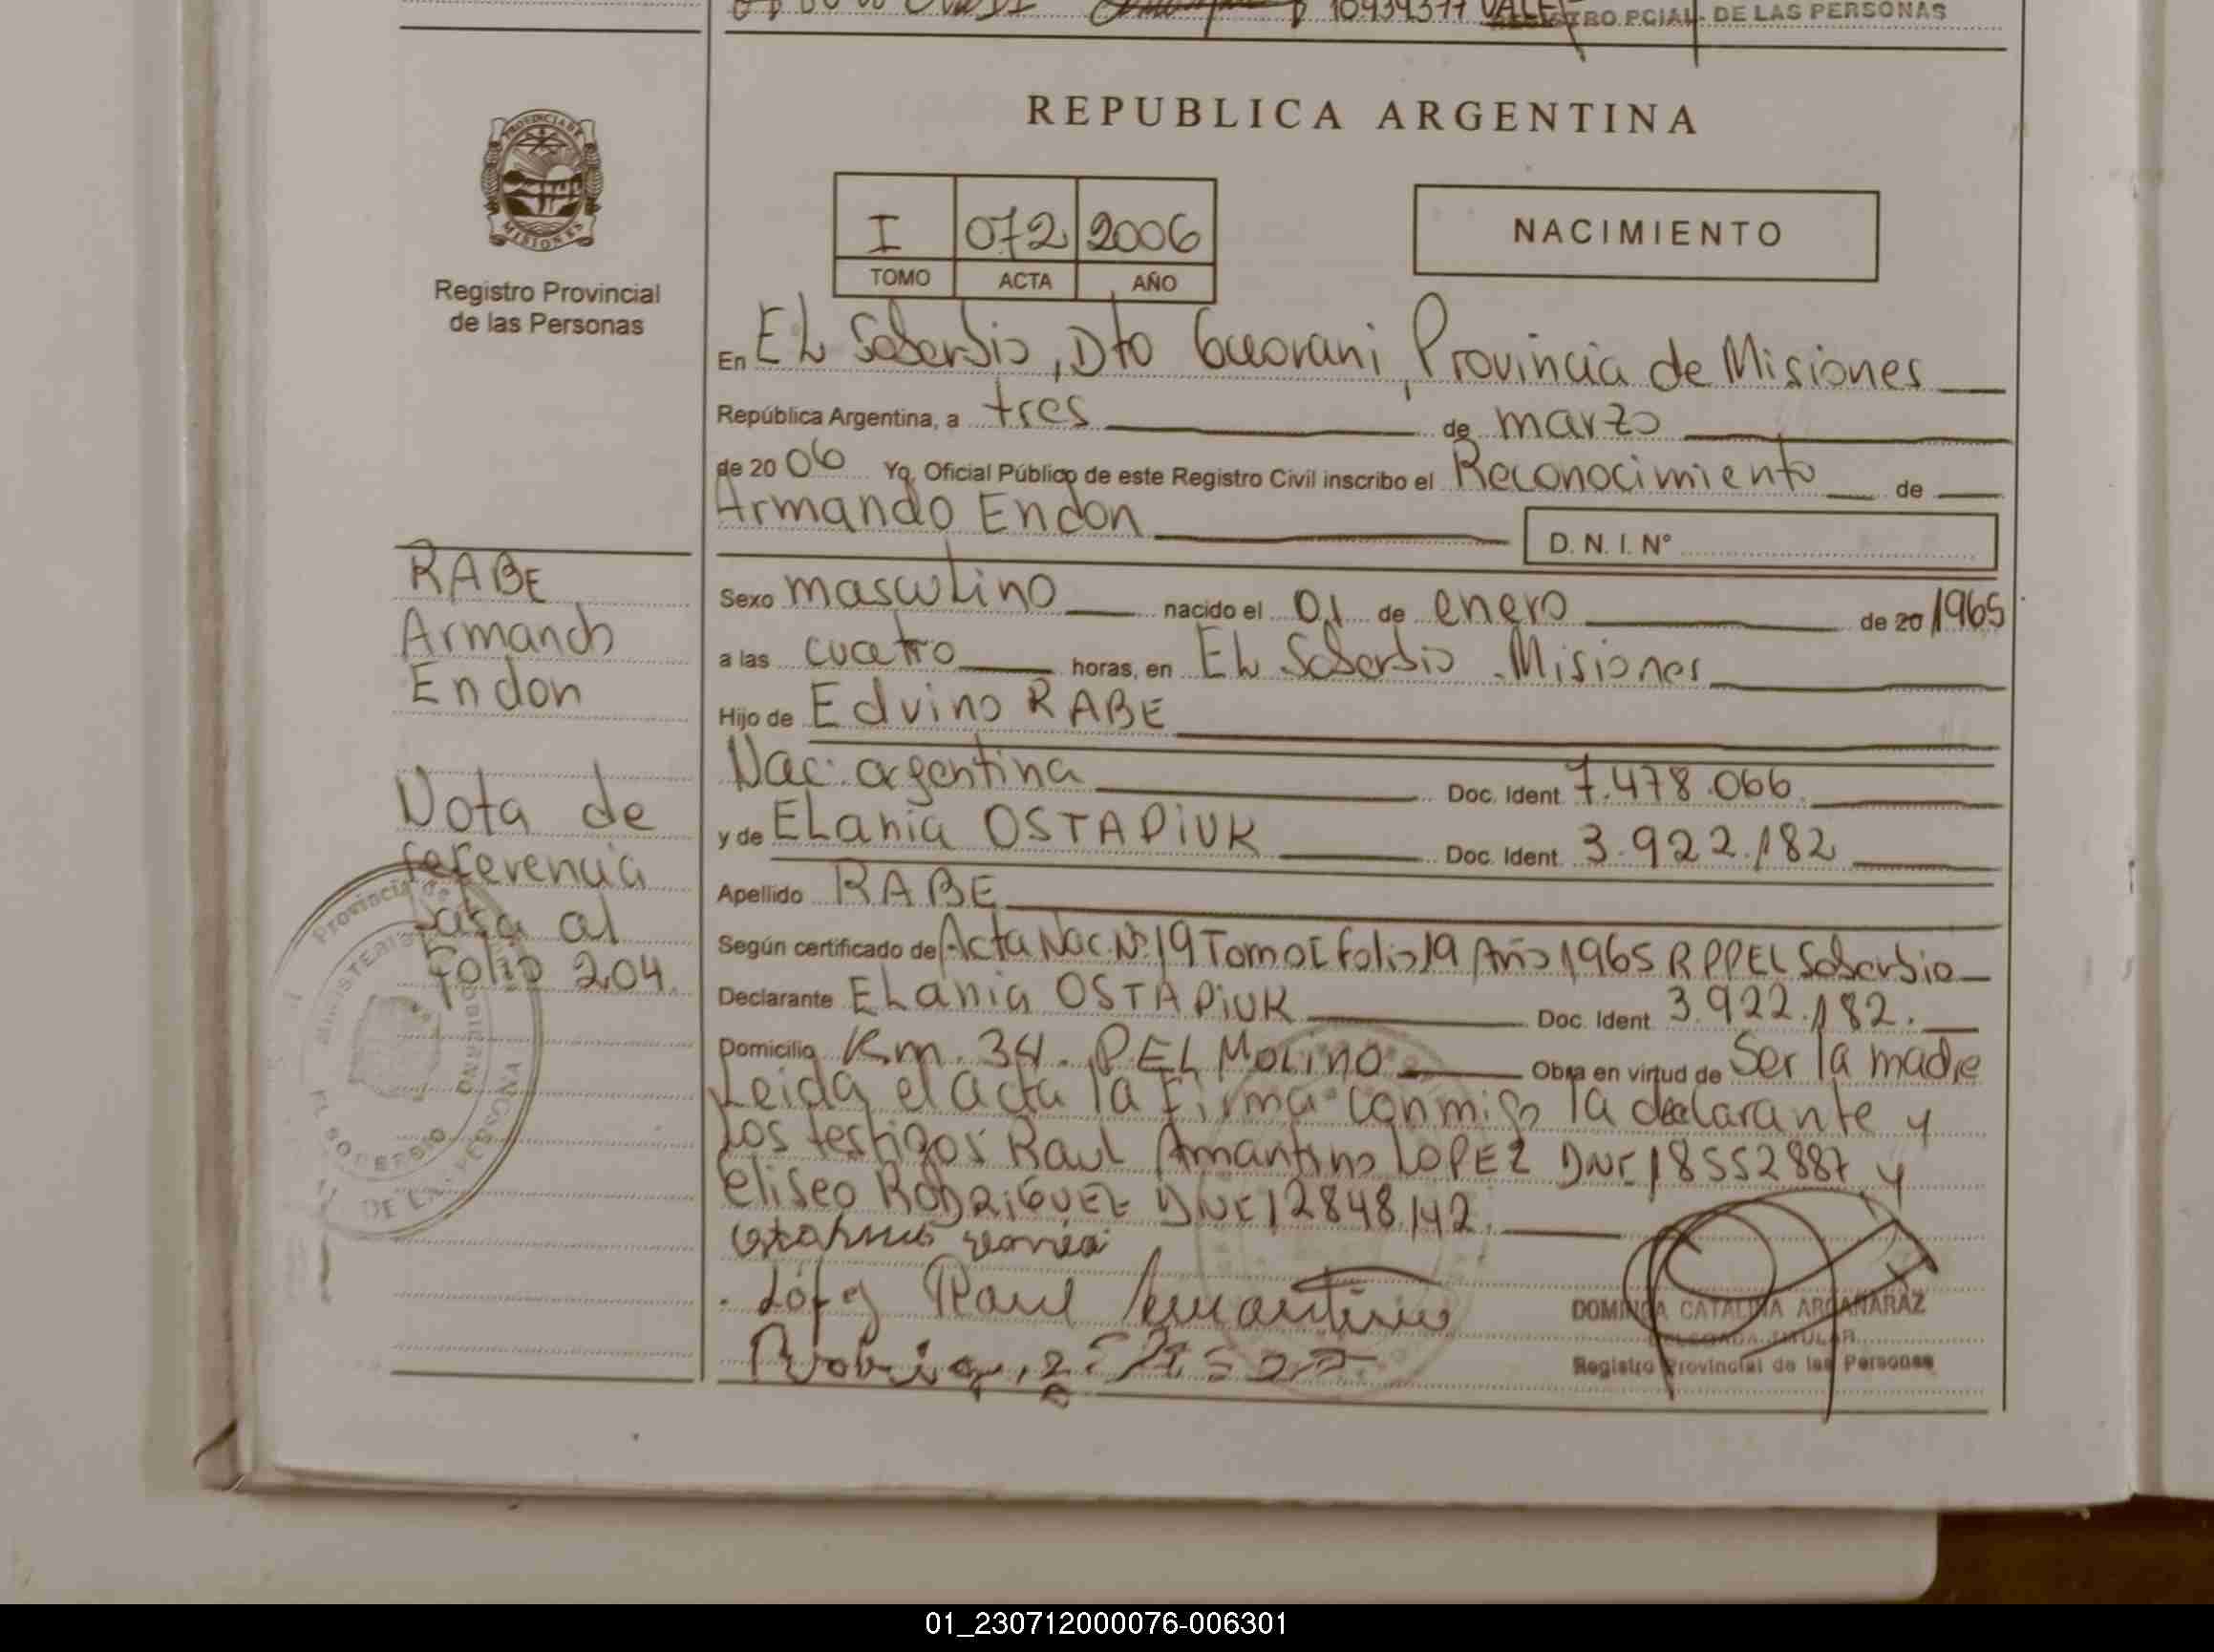 10939377
REGISTRO PCIAL. DE LAS PERSONAS
REPUBLICA ARGENTINA
PROVINCIA DE
MISIONES
Registro Provincial
de las Personas
I 072 2006
TOMO ACTA AÑO
NACIMIENTO
En EL Soberbio, Dto Guarani, Provincia de Misiones
República Argentina, a tres de marzo
de 2006 Yo, Oficial Público de este Registro Civil inscribo el Reconocimiento de
Armando Endon
D. N. I. Nº
RABE
Armando
Endon
Nota de
referencia
pasa al
folio 204.
Sexo masculino nacido el 01 de enero de 20 1965
a las cuatro horas, en EL Soberbio - Misiones
Hijo de Edvino RABE
Nac. argentina Doc. Ident. 7.478.066.
y de ELania OSTAPIUK Doc. Ident. 3.922.182
Apellido RABE
Según certificado de Acta Nac. Nº 19 Tomo I folio 19 Año 1965 RPP EL Soberbio
Declarante ELania OSTAPIUK Doc. Ident. 3.922.182.
Domicilio Km. 34. P. EL MOLINO Obra en virtud de Ser la madre
Leida el acta la firma conmigo la declarante y
Los testigos Raul Amantino LOPEZ DNI 18552887 y
Eliseo RODRIGUEZ DNI 12848.142.
López Raul Amantino
DOMINGA CATALINA ARGAÑARAZ
DELEGADA TITULAR
Registro Provincial de las Personas
Provincia de
MINISTERIO
GOBIERNO
EL SOBERBIO
DE LAS PERSONAS
01_230712000076-006301